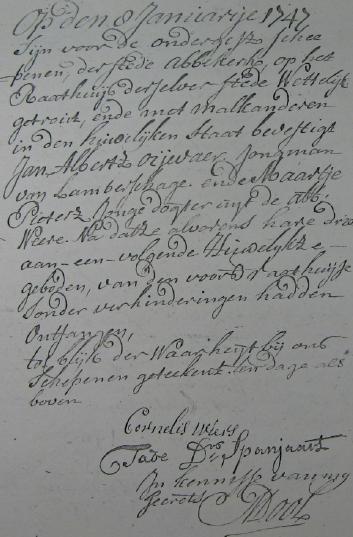 Op den 8 Januarije 1747
Sijn voor de ondergesz. schee
penen, der stede Abbekerk, op het
Raathuijs derselver stede Wettelijk
getroút, ende met malkanderen
in den húwelijken staat bevestigt
Jan Albertz oijevaer, Jongman
van Lambertschage. ende Maartje
Pieterz Jonge dogter uijt de abb:
Weere. Na datze alvorens hare drie
aan-een-volgende Húwelijkze
geboden, van den voorsz. raathuijse
sonder verhinderingen hadden
ontfangen,
tot blijk der Waarheijt bij ons
Schepenen geteekent. ten dage als
boven
Cornelis
Tade Spanjaart
In kennisse van mij
Secrets.